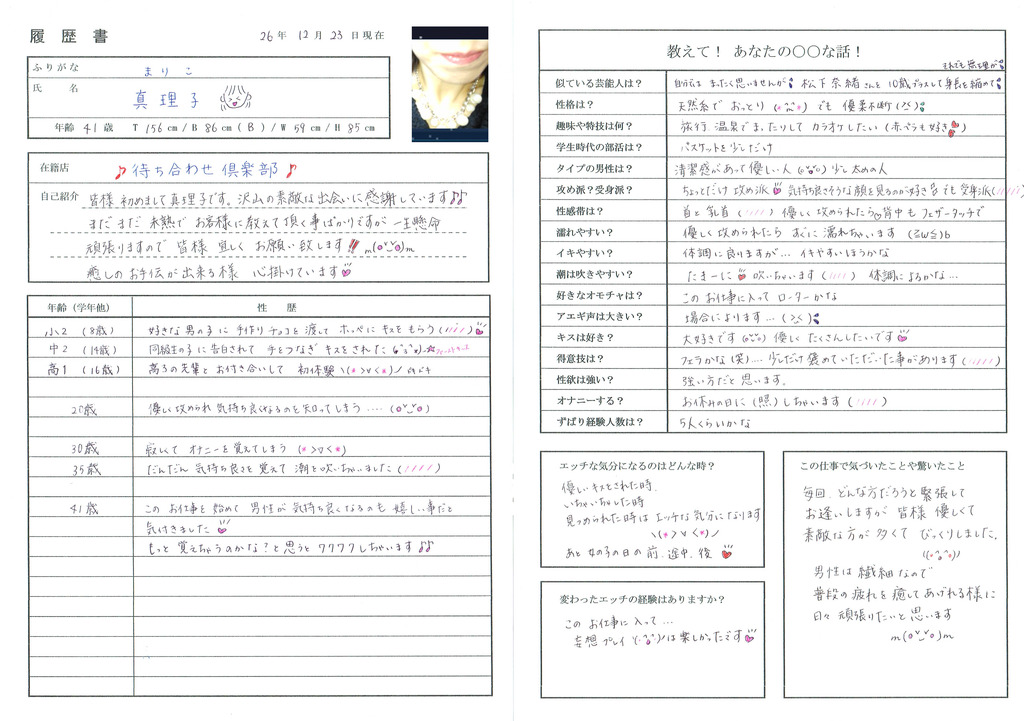 履歴書
26年 12月 23日現在
ふりがな まりこ
氏名 真理子
年齢 41歳 T 156cm / B 86cm ( B ) / W 59cm / H 85cm
在籍店 待ち合わせ倶楽部
自己紹介 皆様初めまして真理子です。沢山の素敵な出会いに感謝しています
まだまだ未熟でお客様に教えて頂く事ばかりですが一生懸命
頑張りますので皆様宜しくお願い致します!! m(o˘‿˘o)m
癒しのお手伝が出来る様 心掛けています
年齢(学年他) 性歴
小2 (8歳) 好きな男の子に手作りチョコを渡してホッペにキスをもらう
中2 (14歳) 同級生の子に告白されて手をつなぎキスをされた
高1 (16歳) 高3の先輩とお付き合いして 初体験
20歳 優しく攻められ気持ち良くなるのを知ってしまう ....
30歳 寂しくてオナニーを覚えてしまう
35歳 だんだん気持ち良さを覚えて潮を吹いちゃいました
41歳 このお仕事を始めて男性が気持ち良くなるのも嬉しい事だと
気付きました
もっと覚えちゃうのかな?と思うとワクワクしちゃいます
教えて! あなたの〇〇な話!
似ている芸能人は? 自分ではまったく思いませんが 松下奈緒さんを10歳プラスして身長を縮めて
性格は? 天然系でおっとり でも優柔不断
趣味や特技は何? 旅行、温泉でまったりしてカラオケしたい (赤ペラも好き)
学生時代の部活は? バスケットを少しだけ
タイプの男性は? 清潔感があって優しい人 少し太めの人
攻め派?受身派? ちょっとだけ攻め派 気持ち良さそうな顔を見るのが好き でも受身派
性感帯は? 首と乳首 優しく攻められたら 背中もフェザータッチで
濡れやすい? 優しく攻められたらすぐに濡れちゃいます (≧ω≦)b
イキやすい? 体調に良りますが… イキやすいほうかな
潮は吹きやすい? たまーに吹いちゃいます 体調によるかな…
好きなオモチャは? このお仕事に入ってローターかな
アエギ声は大きい? 場合によります…
キスは好き? 大好きです 優しくたくさんしたいです
得意技は? フェラかな(笑)…. 少しだけ褒めていただいた事があります
性欲は強い? 強い方だと思います。
オナニーする? お休みの日に(照)しちゃいます
ずばり経験人数は? 5人くらいかな
エッチな気分になるのはどんな時?
優しいキスをされた時、
いちゃいちゃした時
見つめられた時はエッチな気分になります
あと女の子の日の前、途中、後
変わったエッチの経験はありますか?
このお仕事に入って…
妄想プレイは楽しかったです
この仕事で気づいたことや驚いたこと
毎回、どんな方だろうと緊張して
お逢いしますが皆様優しくて
素敵な方が多くてびっくりしました。
男性は繊細なので
普段の疲れを癒してあげれる様に
日々頑張りたいと思います
m(o˘‿˘o)m